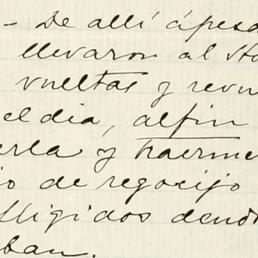 - De allí á pesa
llevaron al
vueltas y revu
el dia, al fin
erla y traerme
io de regocijo
fligidos
ban.